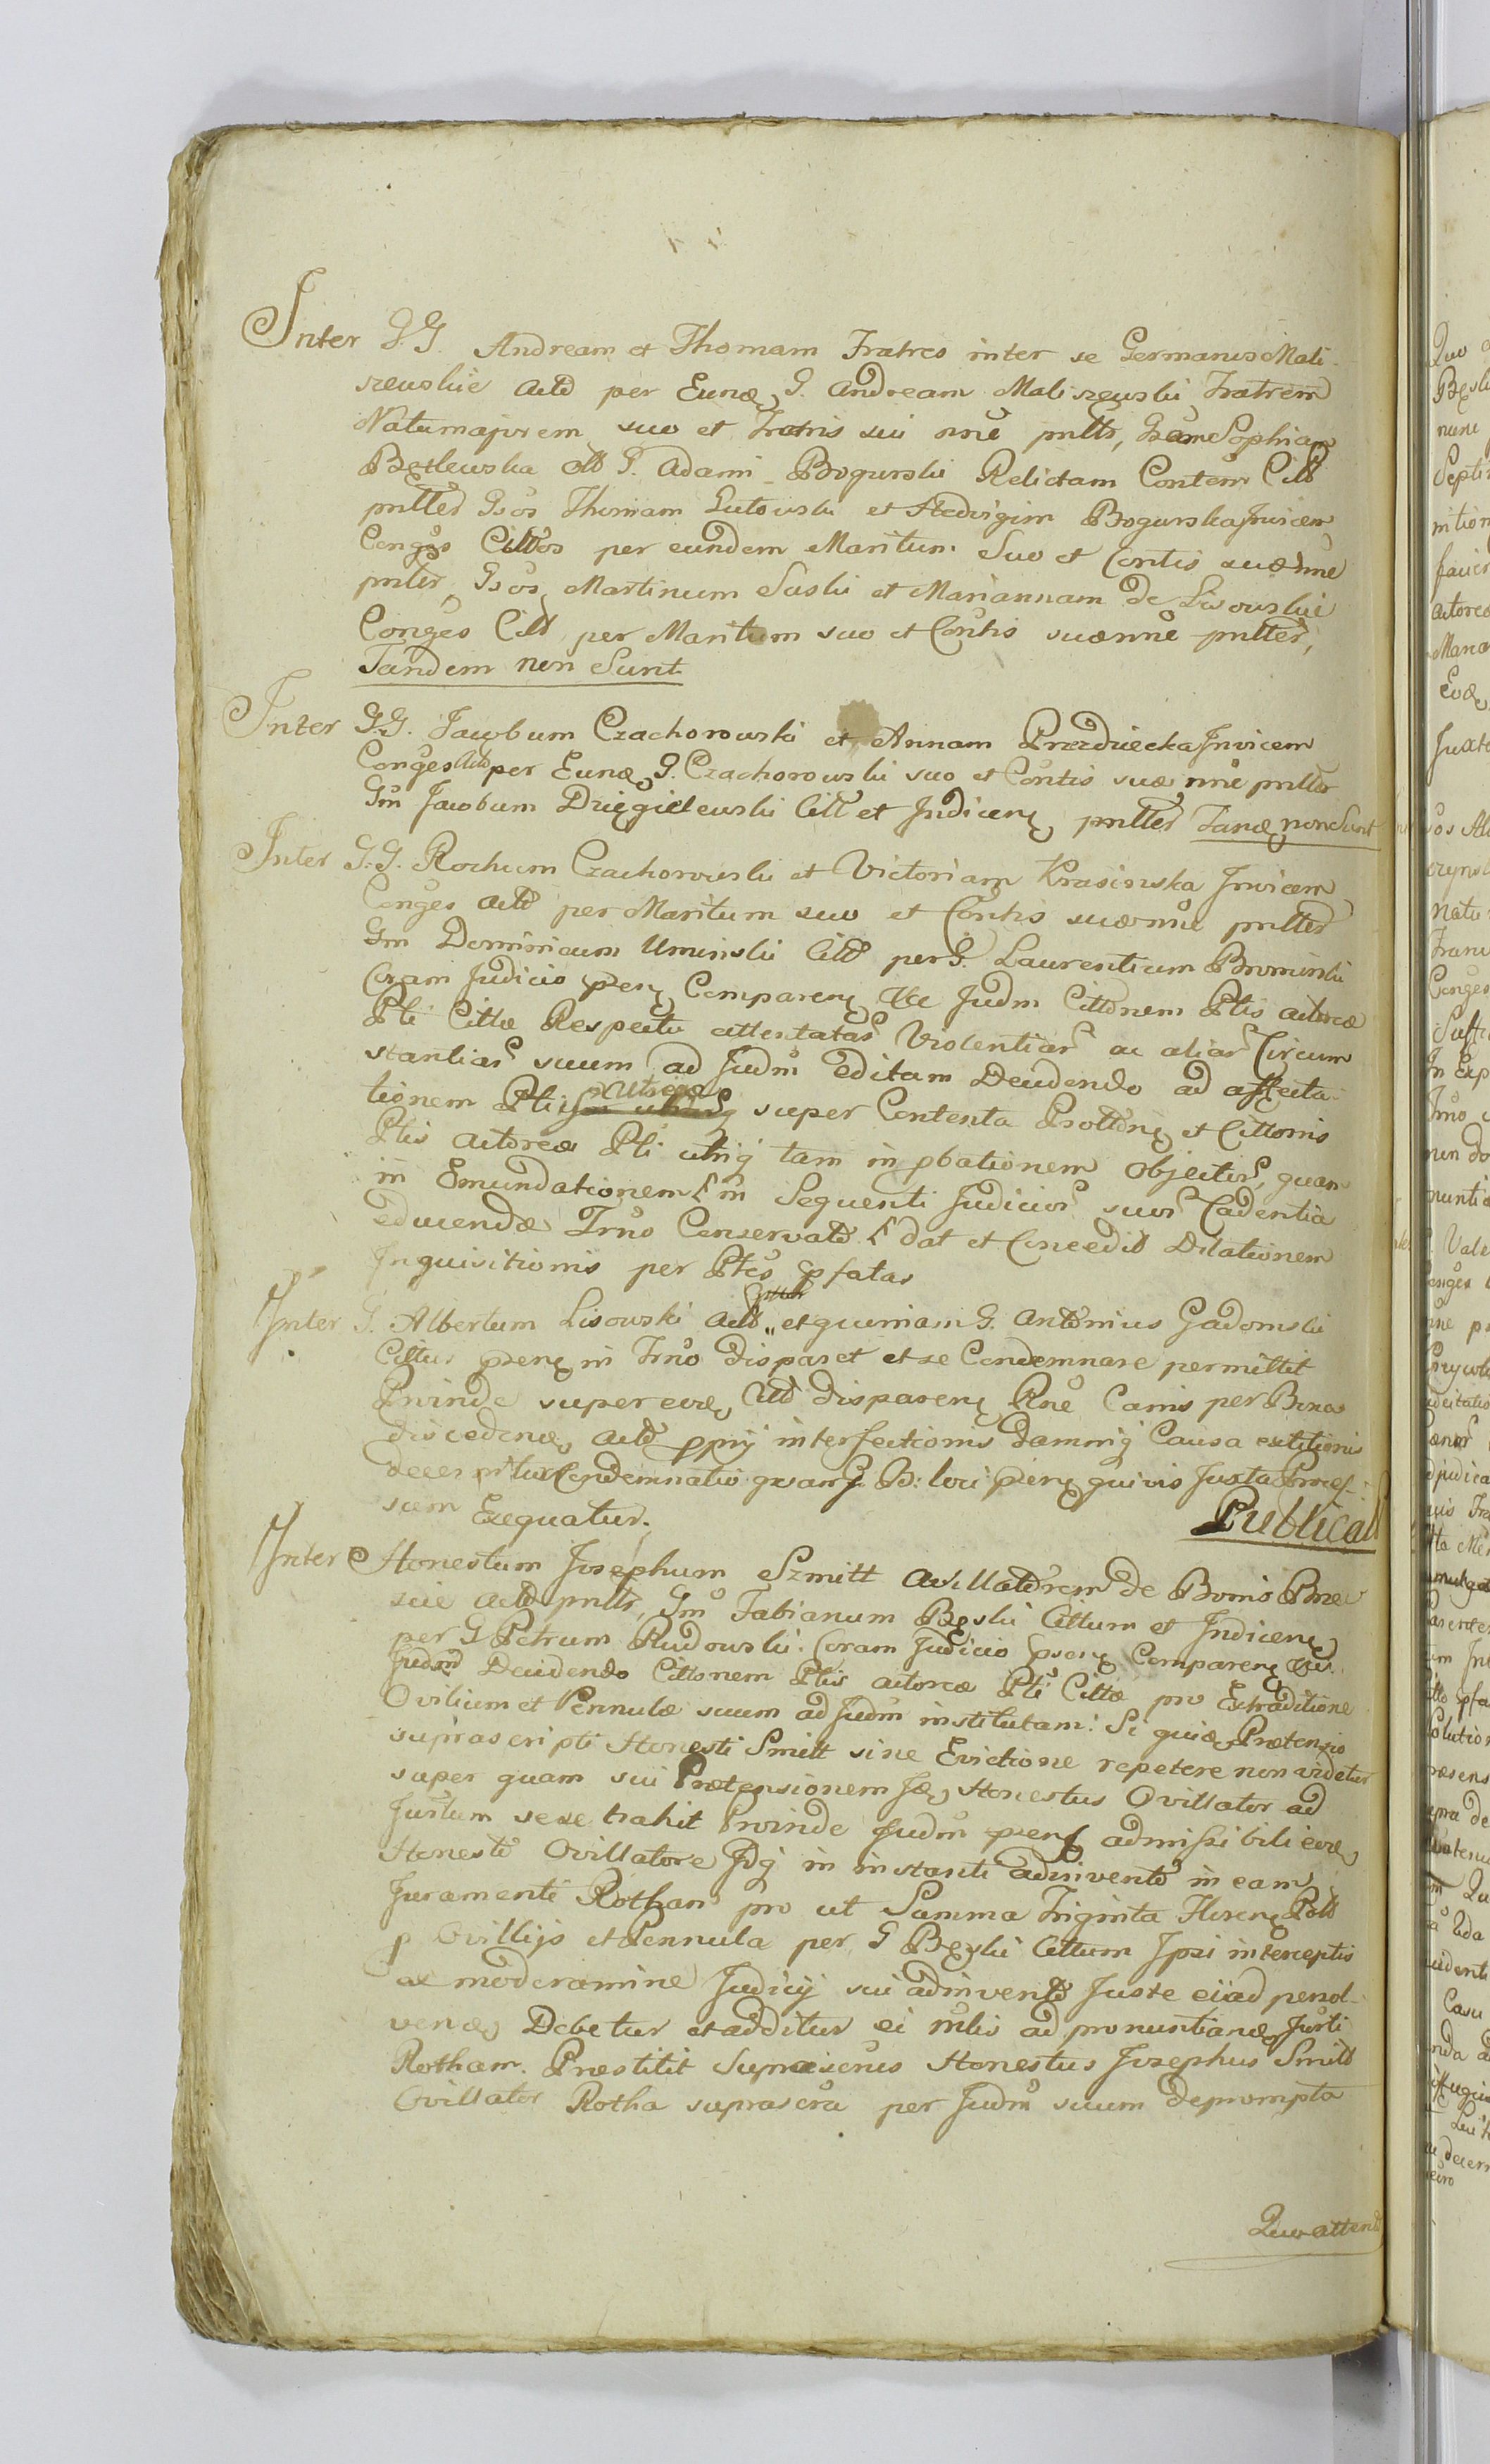 Inter G.G. Andream et Thomam Fratres inter se Germanos Mali-
szewskie Actō per Eund G. Andream Maliszewski Fratrem
Natumajorem suo et Fratris sui nne pnlts, Gsam Sophiam
Bęzlewska olb G. Adami Bogurski Relictam Contem Citt
pnlter Gsos Thomam Lutowski et Hedvigim Bogurska Invicem
Conges Cittos per eundem Maritum Suo et Contis suæ nne
pnlter, Gsos Martinum Suski et Mariannam de Lisowskie
Conges Citt per Maritum suo et Contis suæ nne pnlter,
Tandem non Sunt
Inter G.G. Jacobum Czachorowski et Annam Przezdziecka Invicem
Conges Acto per Eund G. Czachorowski suo et Contis suæ nne pnlter
Gm Jacobum Dzięgielewski Citt et Indicem pnlter Tand non Sunt
Inter G.G. Rochum Czachorowski et Victoriam Krasinska Invicem
Conges Acto per Maritum suo et Contis suæ nne pnlter
Gm Dominicum Uminski Citt per G. Laurentium Brominski
Coram Judicio psen Comparen Judm Cittonem Ptis Actoreæ
Pti Cittæ Respectu attentatar Violentiar ac aliar Circum
stantiar suum ad Judm editam Decidendo ad affecta-
tionem Ptis utriusq super Contenta Prottonis et Cittonis
Ptis Actoreæ Pti utriq tam in pbationem Objector, quam
in Emundationem in Sequenti Judicior suor Cadentia
educendæ Trno Conservato dat et Concedit Dilationem
Inquisitionis per Ptes pfatas
Inter G. Albertum Lisowski Acto et quoniam G. Antonius Gadomski
Cittus psen in Trno disparet et se Condemnare permittit
Proinde super eod Citto disparen Rne Canis per Bona
discedend Acto ppij interfectionis damniq Causa
decernitur Condemnatio quam G. B: loci psen quivis Juxta Proces-
sum Exequatur.
Publicat
Inter Honestum Josephum Szmitt Ovillatorem de Bonis Brze
scie Acto pnlts, Gm Fabianum Bęski Cittum et Indicem
per G Petrum Rudowski. Coram Judicio psen Comparen
Judm Decidendo Cittonem Ptis Actoreæ Pti Cittæ pro Extraditione
Ovilium et Pennulæ suum ad Judm institutam: Si quid Prætensio
suprascripti Honesti Smitt sine Evictione repetere non videtur
super quam sui Prætensionem Id Honestus Ovillator ad
Jurtum sese trahit Proinde Judm psens admissibili eod
Honesto Ovillatore Idq in instanti adinvento in eam
Juramenti Rotham pro ut Summa Triginta Floren Poll
p Ovillijs et Pennula per G Bęski Cittum Ipsi interceptis
ex moderamine Judicij sui adinvento Juste ei ad persol-
vend Debetur et additur ei mlis ad pronuntiand Jurti
Rotham. Præstitit Suprascrius Honestus Josephus Smitt
Ovillator Rotha suprascra per Judm suum deprompta
Quo attento